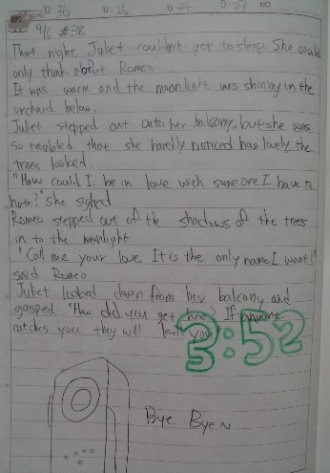 0:36 0:26 0:24 0:23 NO
9/6 #38
That night Juliet couldn't get to sleep. She could
only think about Romeo
It was warm and the moonlight was shining in the
orchard below.
Juliet stepped out onto her balcony, but she was
so troubled that she hardly noticed how lovely the
trees looked.
"How could I be in love with someone I have to
hate?" she sighed
Romeo stepped out of the shadows of the trees
in to the moonlight
"Call me your love. It is the only name I want!"
said Romeo
Juliet looked down from her balcony and
gasped "How did you get here? If anyone
catches you they will kill you
3:52
Bye Bye~